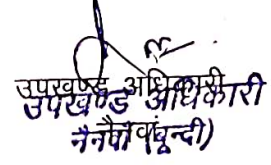 उपखण्ड अधिकारी
उपखण्ड अधिकारी
नैनवां (बून्दी)